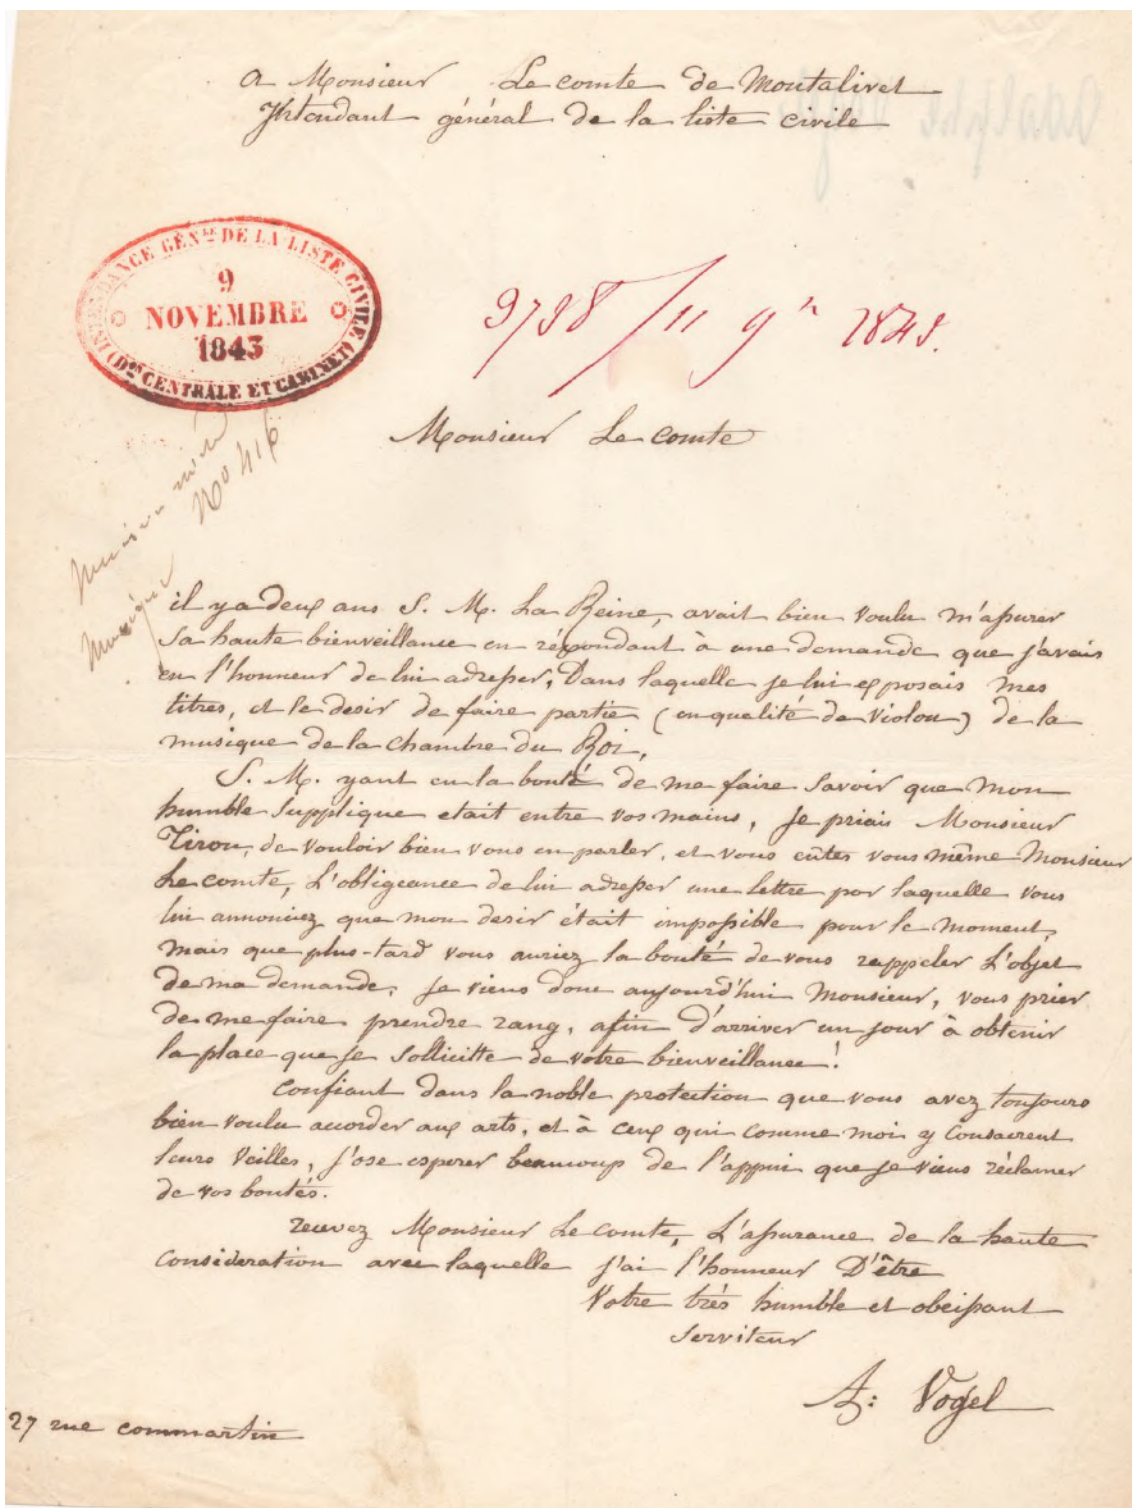 a Monsieur Le comte de Montalivet
Intendant général de la liste civile
INTENDANCE GÉNLE DE LA LISTE CIVILE
9
NOVEMBRE
1843
(DON CENTRALE ET CABINET)
9798 / 11 9bre 1843.
Monsieur Le comte
No 416
musique
il y a deux ans S. M. La Reine, avait bien voulu m'assurer
sa haute bienveillance en répondant à une demande que j'avais
eu l'honneur de lui adresser, Dans laquelle je lui exposais mes
titres, et le desir de faire partie (en qualité de violon) de la
musique de la chambre du Roi,
S. M. yant eu la bonté de me faire savoir que mon
humble supplique etait entre vos mains, je priais Monsieur
Tiron, de vouloir bien vous en parler, et vous eûtes vous même Monsieur
Le comte, L'obligeance de lui adresser une lettre par laquelle vous
lui annonciez que mon desir était impossible pour le moment,
mais que plus-tard vous auriez la bonté de vous rappeler L'objet
de ma demande, je viens donc aujourd'hui Monsieur, vous prier
de me faire prendre rang, afin d'arriver un jour à obtenir
la place que je sollicitte de votre bienveillance!
Confiant dans la noble protection que vous avez toujours
bien voulu accorder aux arts, et à ceux qui comme moi y consacrent
leurs veilles, j'ose esperer beaucoup de l'appui que je viens réclamer
de vos bontés.
recevez Monsieur Le comte, L'assurance de la haute
consideration avec laquelle j'ai l'honneur D'être
Votre très humble et obeissant
serviteur
A: Vogel
27 rue commartin